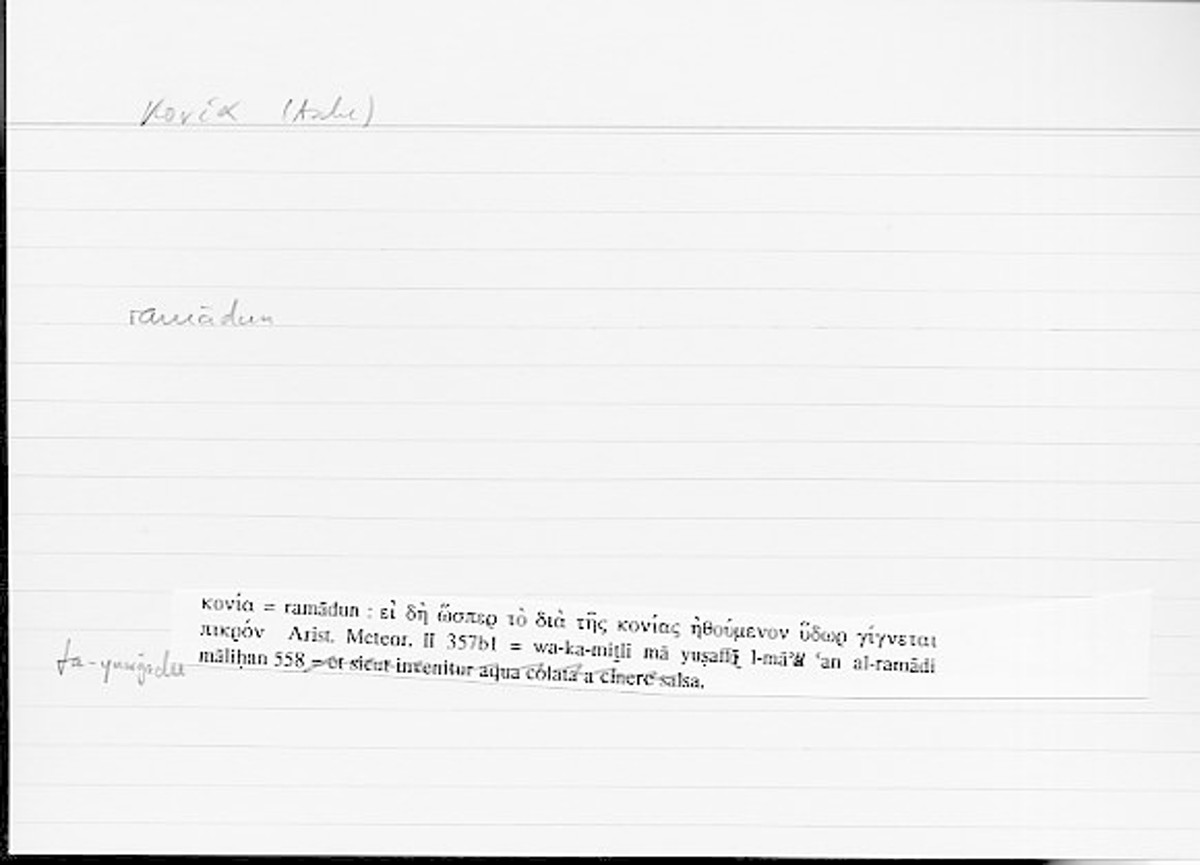 κονία (Asche)
ramādun
κονία = ramādun : εἰ δὴ ὥσπερ τὸ διὰ τῆς κονίας ἠθούμενον ὕδωρ γίγνεται
πικρόν Arist. Meteor. II 357b1 = wa-ka-miṯli mā yuṣaffī l-mā’a ‘an al-ramādi
fa-yūǧadu māliḥan 558 = et sicut invenitur aqua colata a cinere salsa.